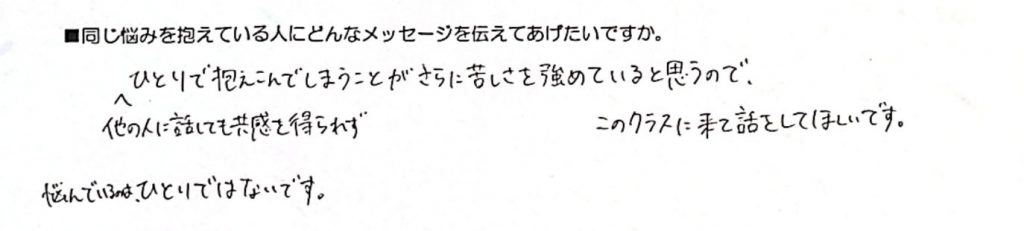 ■同じ悩みを抱えている人にどんなメッセージを伝えてあげたいですか。
ひとりで抱えこんでしまうことがさらに苦しさを強めていると思うので、
他の人に話しても共感を得られず
このクラスに来て話をしてほしいです。
悩んでいるのは、ひとりではないです。